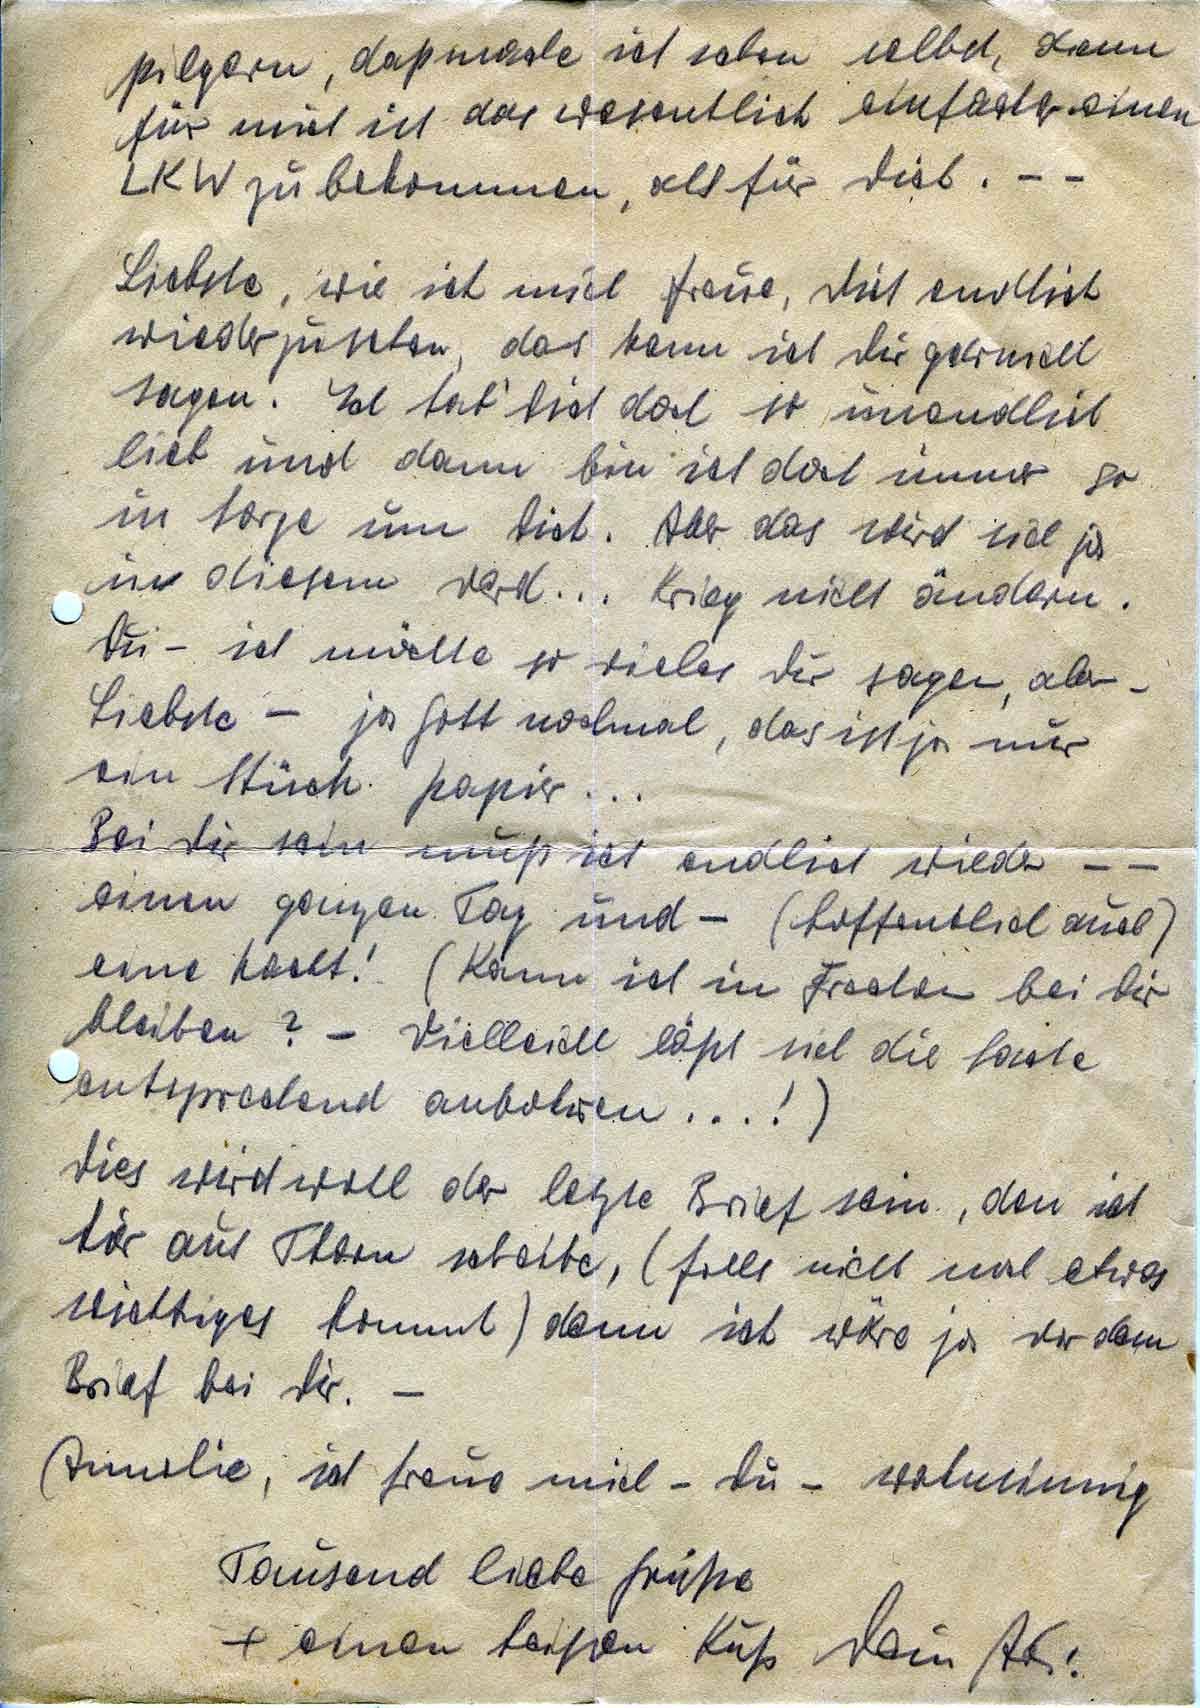 pilgern, daß mache ich schon selbst, denn
für mich ist das wesentlich einfacher einen
LKW zu bekommen, als für Dich. - -
Liebste, wie ich mich freue, Dich endlich
wiederzusehen, das kann ich Dir gar nicht
sagen. Ich hab' Dich doch so unendlich
lieb und dann bin ich doch immer so
in Sorge um Dich. Aber das wird sich ja
in diesem ... Krieg nicht ändern.
Du - ich möchte so vieles Dir sagen, aber -
Liebste - ja Gott nochmal, das ist ja nur
ein Stück Papier ...
Bei Dir sein muß ich endlich wieder - -
einen ganzen Tag und - (hoffentlich auch)
eine Nacht! (Kann ich in bei Dir
bleiben? - Vielleicht läßt sich die Sache
entsprechend anbohren ...!)
Dies wird wohl der letzte Brief sein, den ich
Dir aus Thorn schreibe, (falls nicht noch etwas
wichtiges kommt) denn ich wäre ja vor dem
Brief bei Dir. -
Annelie, ich freue mich - Du - wahnsinnig
Tausend liebe Grüße
+ einen heißen Kuß Dein